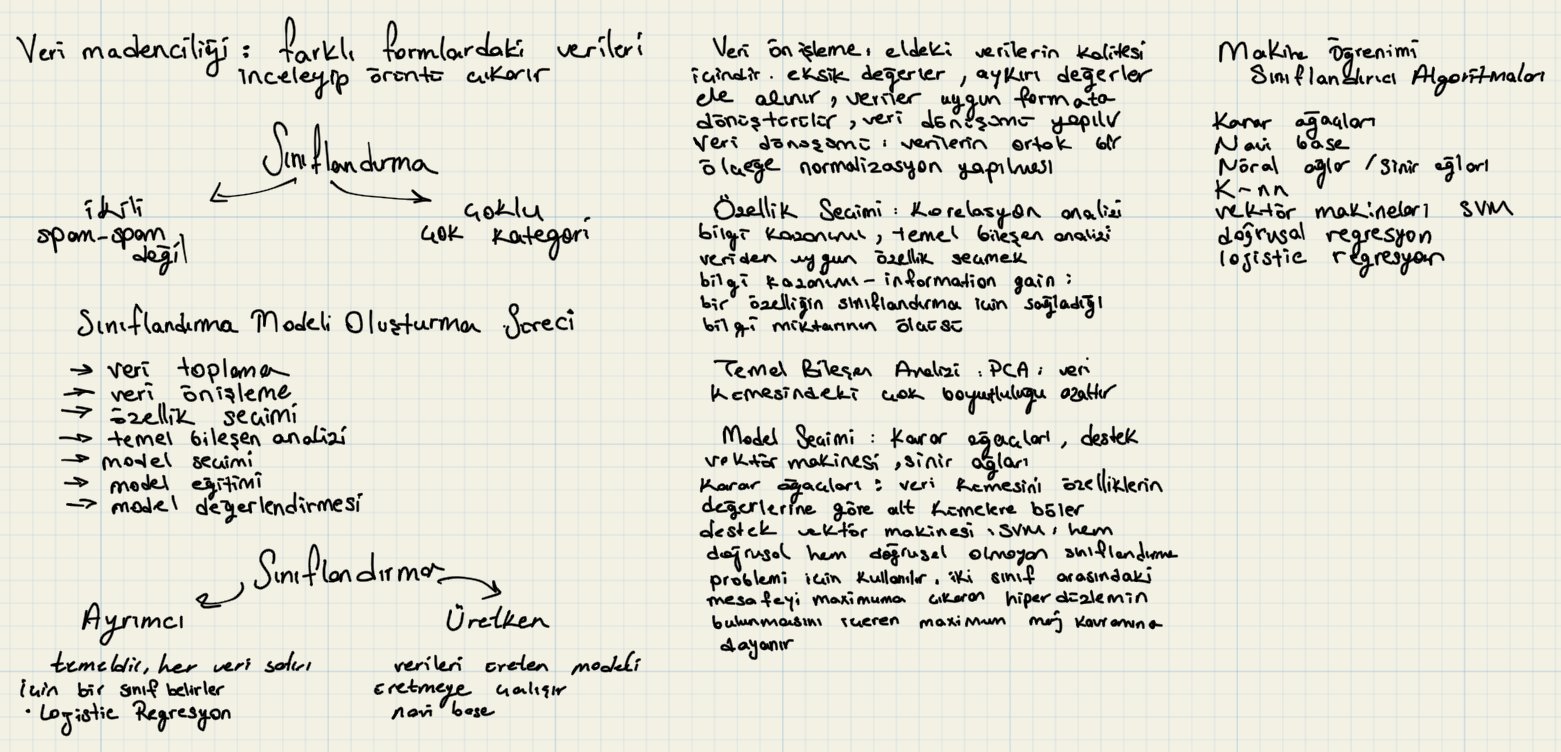 Veri madenciliği : farklı formlardaki verileri
inceleyip örüntü çıkarır
Sınıflandırma
ikili
spam-spam
değil
çoklu
çok kategori
Sınıflandırma Modeli Oluşturma Süreci
→ veri toplama
→ veri önişleme
→ özellik seçimi
→ temel bileşen analizi
→ model seçimi
→ model eğitimi
→ model değerlendirmesi
Sınıflandırma
Ayrımcı
temeldir, her veri satırı
için bir sınıf belirler
• Logistic Regresyon
Üretken
verileri üreten modeli
üretmeye çalışır
navi base
Veri önişleme : eldeki verilerin kalitesi
içindir. eksik değerler, aykırı değerler
ele alınır, veriler uygun formata
dönüştürülür, veri dönüşümü yapılır
Veri dönüşümü : verilerin ortak bir
ölçeğe normalizasyon yapılması
Özellik Seçimi : Korelasyon analizi
bilgi kazanımı, temel bileşen analizi
veriden uygun özellik seçmek
bilgi kazanımı - information gain :
bir özelliğin sınıflandırma için sağladığı
bilgi miktarının ölçüsü
Temel Bileşen Analizi : PCA : veri
kümesindeki çok boyutluluğu azaltır
Model Seçimi : Karar ağaçları, destek
vektör makinesi, sinir ağları
Karar ağaçları : veri kümesini özelliklerin
değerlerine göre alt kümelere böler
destek vektör makinesi : SVM : hem
doğrusal hem doğrusal olmayan sınıflandırma
problemi için kullanılır. iki sınıf arasındaki
mesafeyi maximuma çıkaran hiper düzlemin
bulunmasını içeren maximum marj kavramına
dayanır
Makine Öğrenimi
Sınıflandırıcı Algoritmaları
Karar ağaçları
Navi base
Nöral ağlar / Sinir ağları
K-nn
vektör makineleri SVM
doğrusal regresyon
logistic regresyon